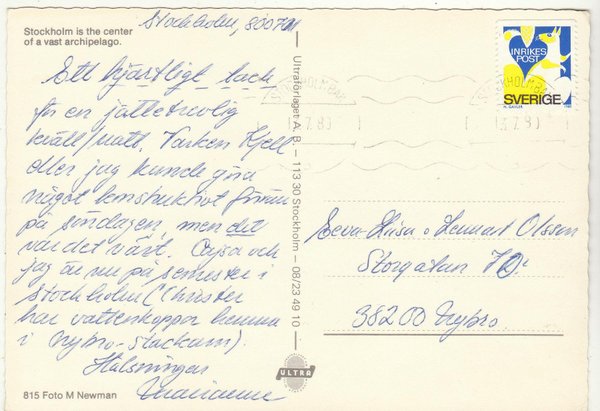 Stockholm is the center
of a vast archipelago.
Stockholm, 800711
Ett hjärtligt tack
för en jättetrevlig
kväll/natt. Varken Kjell
eller jag kunde göra
något konstruktivt
på söndagen, men det
var det värt. och
jag är nu på semester i
Stockholm (Christer
har vattenkoppor hemma
i Nybro-stackarn)
Hälsningar
Marianne
815 Foto M Newman
Ultraförlaget A.B. – 113 30 Stockholm – 08/23 49 10
ULTRA
INRIKES
POST
SVERIGE
STOCKHOLM
7.80
Eeva-Liisa o Lennart Olsson
Storgatan
38200 Nybro